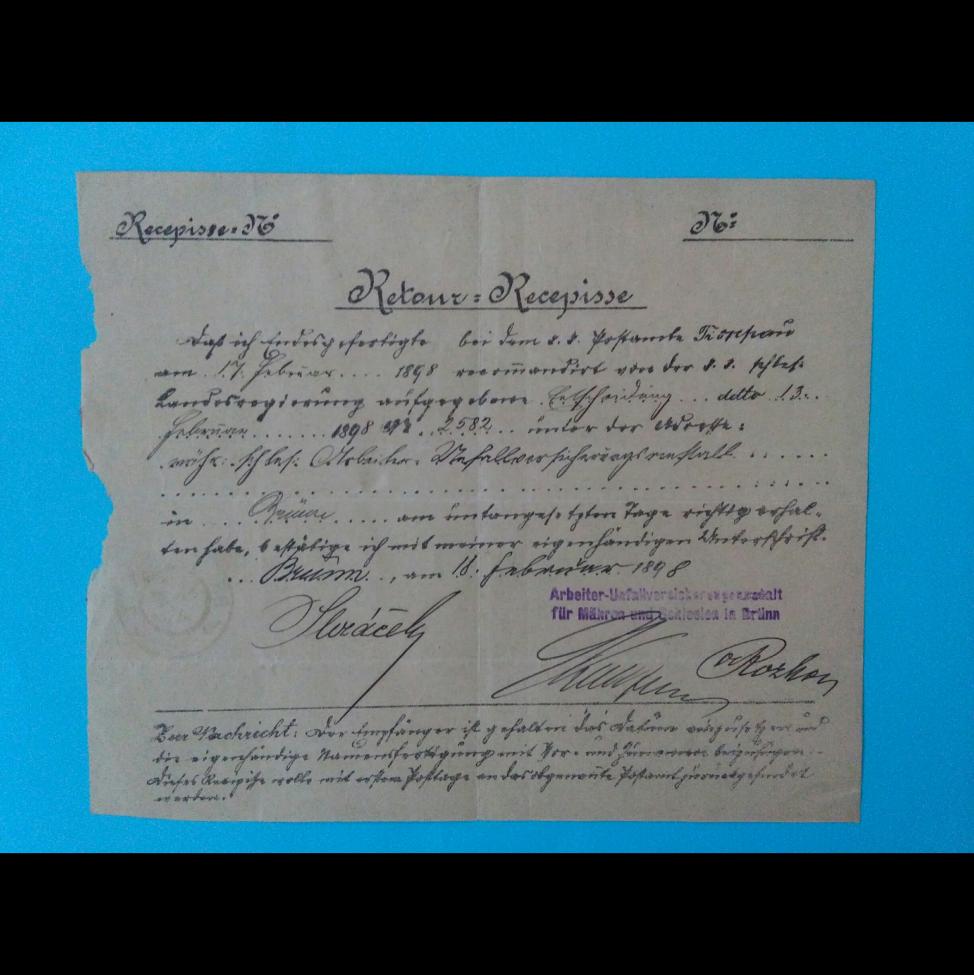 Recepisse-No
No:
Retour-Recepisse
Daß ich Endesgefertigte bei dem k. k. Postamte Troppau
am 17. Februar .... 1898 recommandirt von der k. k. schles:
Landesregierung aufgegebene Entscheidung ... ddtto 13..
Februar ...... 1898 No 2582 .. unter der Adresse:
mähr. schles. Arbeiter-Unfallversicherungsanstalt ......
in ... Brünn ..... am untangesetzten Tage richtig erhal-
ten habe, bestätige ich mit meiner eigenhändigen Unterschrift.
... Brünn .., am 18. Februar 1898
Arbeiter-Unfallversicherungsanstalt
für Mähren und Schlesien in Brünn
Rozkon
Zur Nachricht: Der Empfänger ist gehalten das Datum anzusetzen und
die eigenhändige Namensfertigung mit Vor- und Zunamen beizufügen.
Dieses Recepisse wolle mit erstem Posttage an das obgenannte Postamt zurückgesendet
werden.